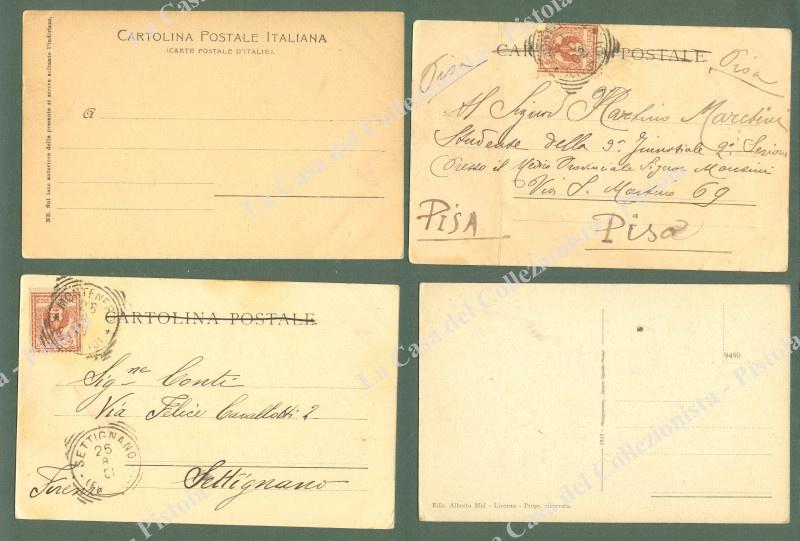 CARTOLINA POSTALE ITALIANA
(CARTE POSTALE D'ITALIE)
NB. Sul lato anteriore della presente si scrive soltanto l'indirizzo.
A
CARTOLINA POSTALE
Pisa
Pisa
Al Signor Martino Marcuini
Studente della 3ª Ginnasiale 2ª Sezione
Presso il Medico Provinciale Signor
Via S. Martino 69
PISA
Pisa
MONTENERO
25
8
01
CARTOLINA POSTALE
Sig.ne Conti
Via Felice Cavallotti 2
SETTIGNANO
26
8
01
Settignano
Firenze
9490
Ediz. Alberto Mei - Livorno - Propr. riservata.
La Casa del Collezionista - Pistoia